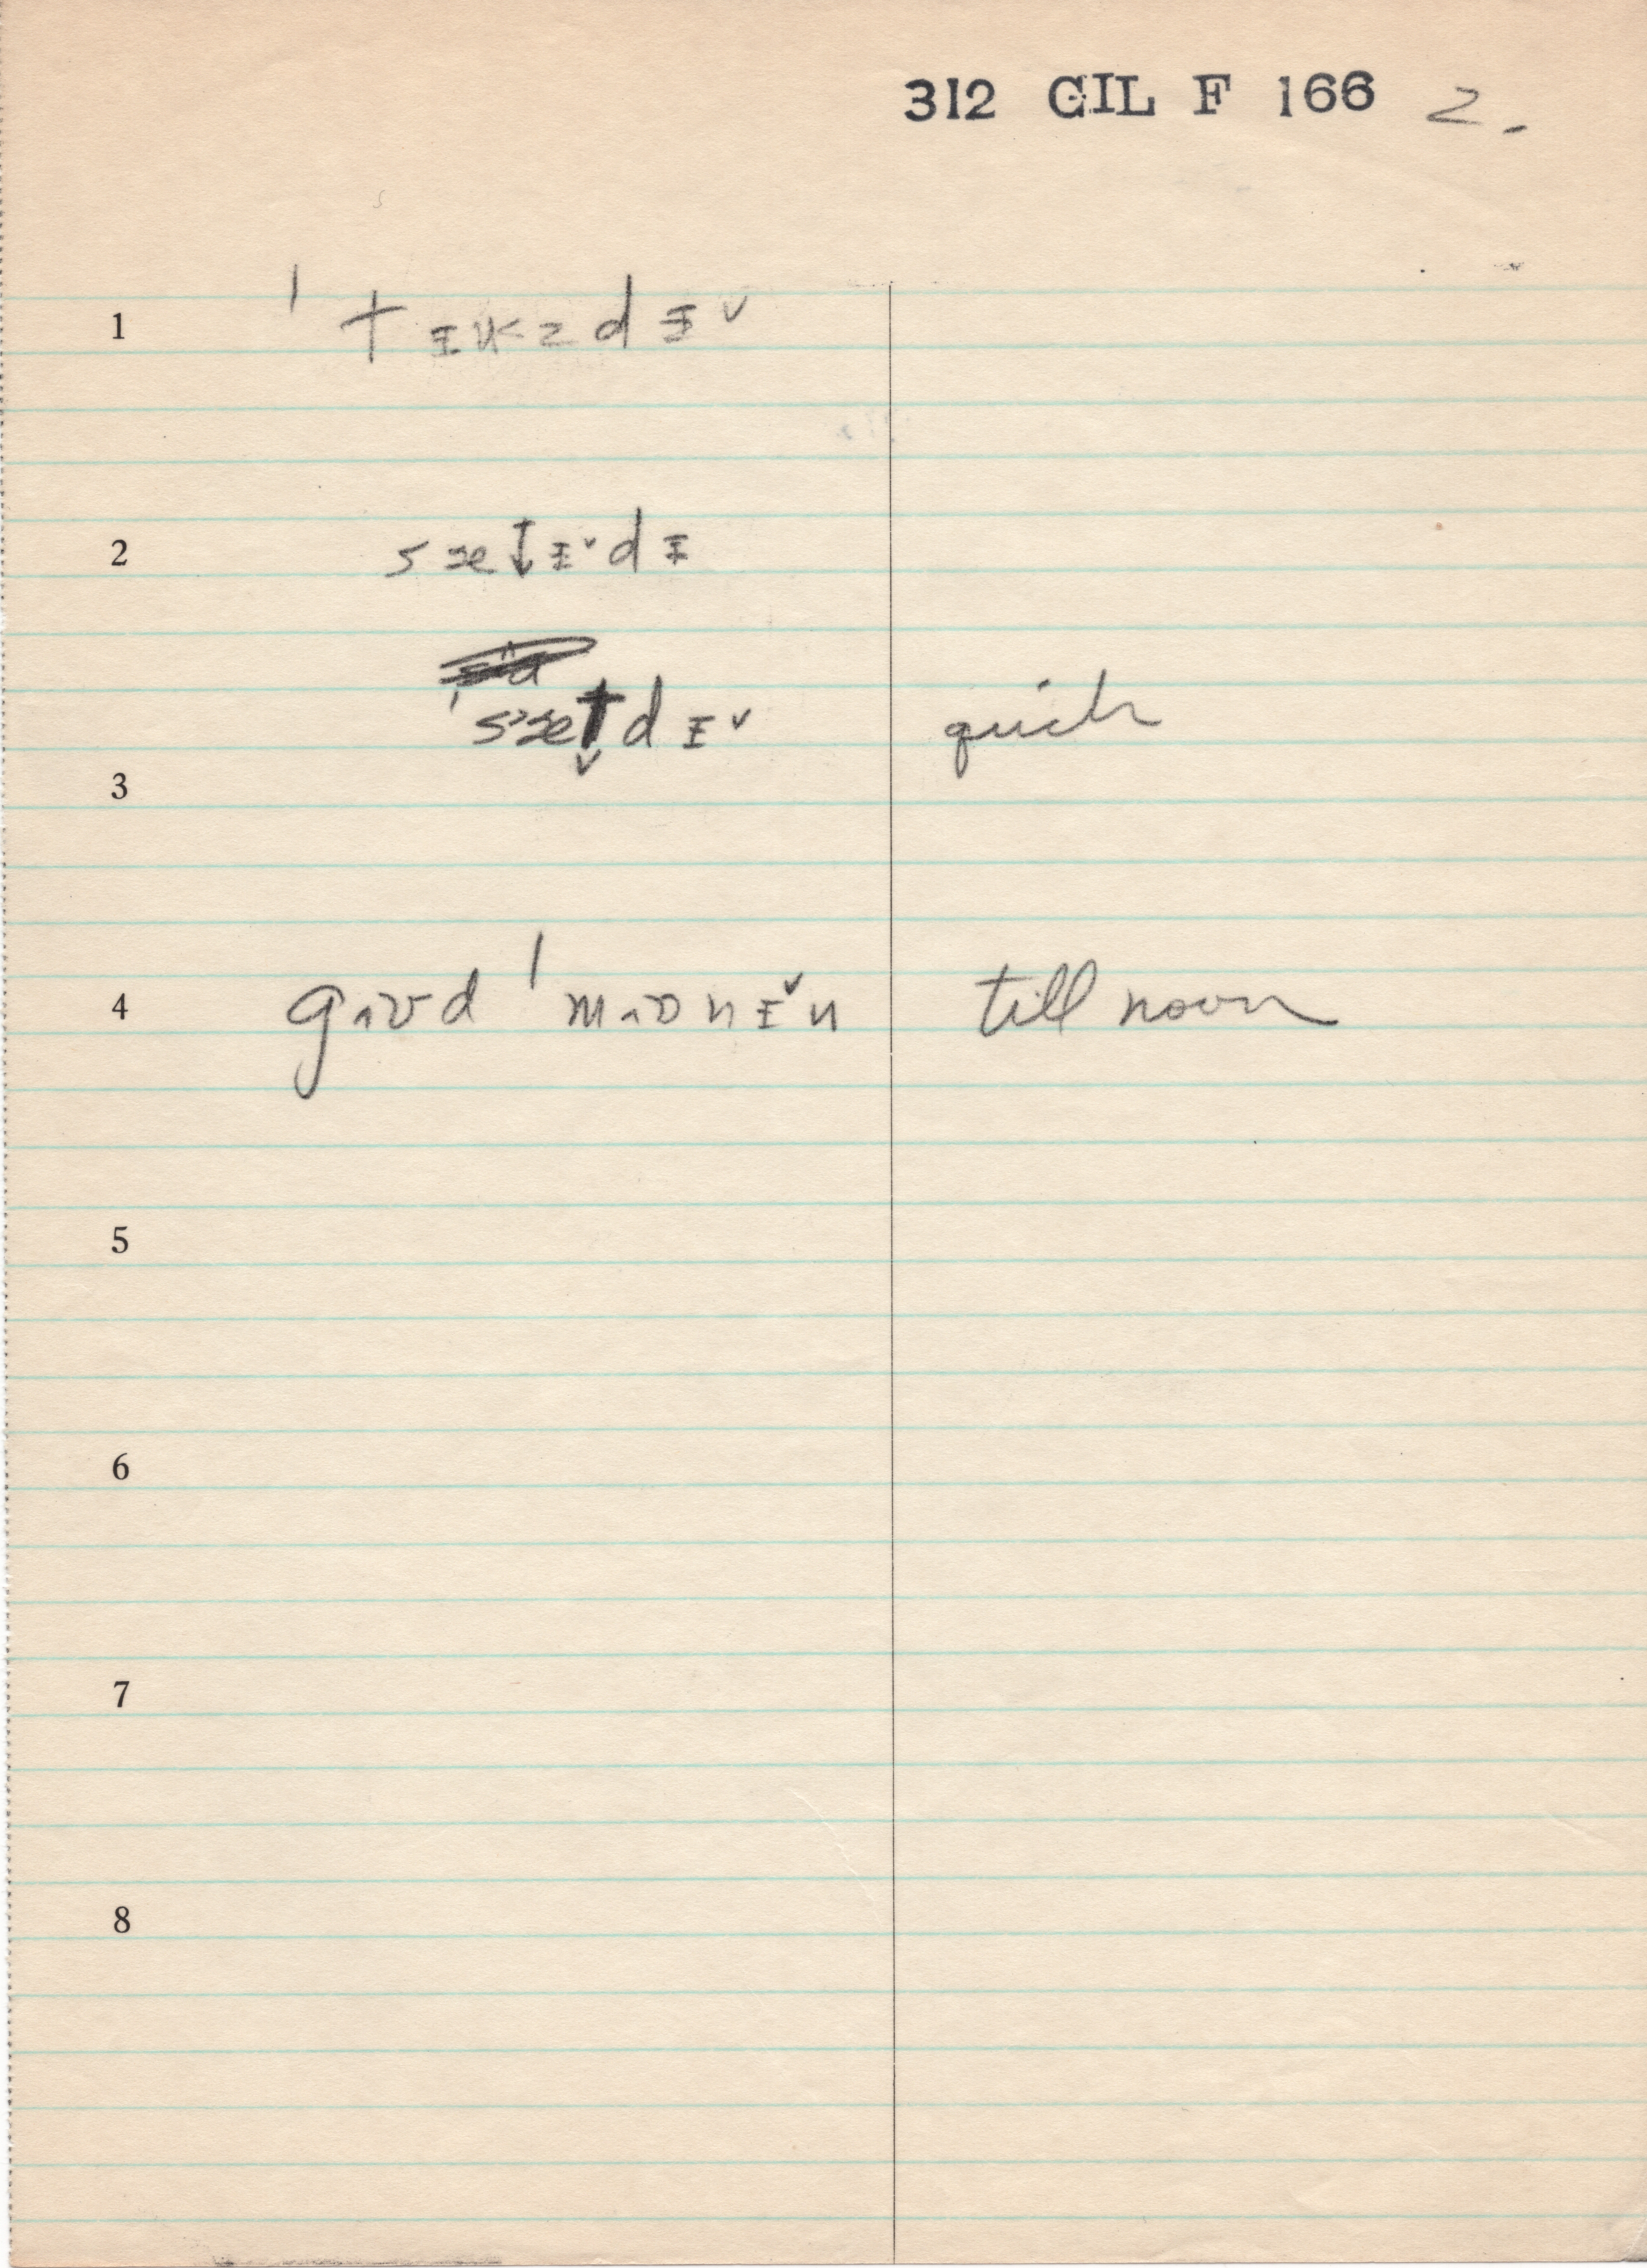 312 GIL F 166 2.
1 ˈtɪukzdɪ˅
2 sætɪ˅dɪ
3 ˈsætdɪ˅ quick
4 gɪʊd ˈmɔnɪ˅n till noon
5
6
7
8